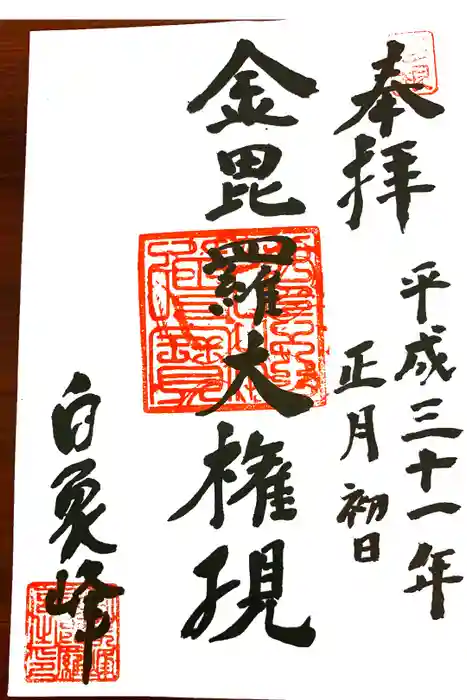 奉拝
平成三十一年
正月初日
金毘羅大権現
白象峰